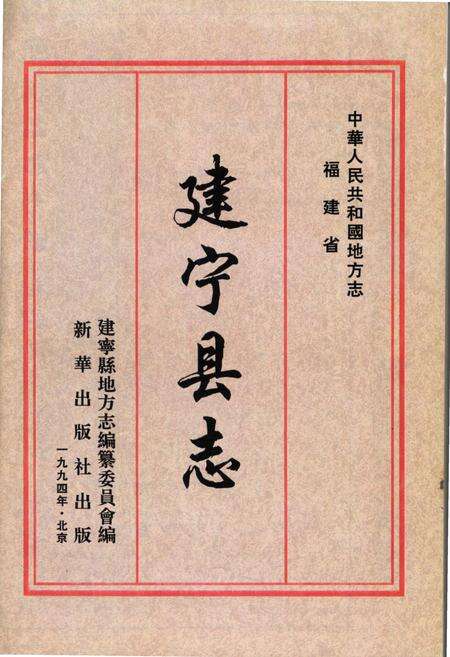 中華人民共和國地方志
福建省
建宁县志
建寧縣地方志編纂委員會編
新華出版社出版
一九九四年·北京